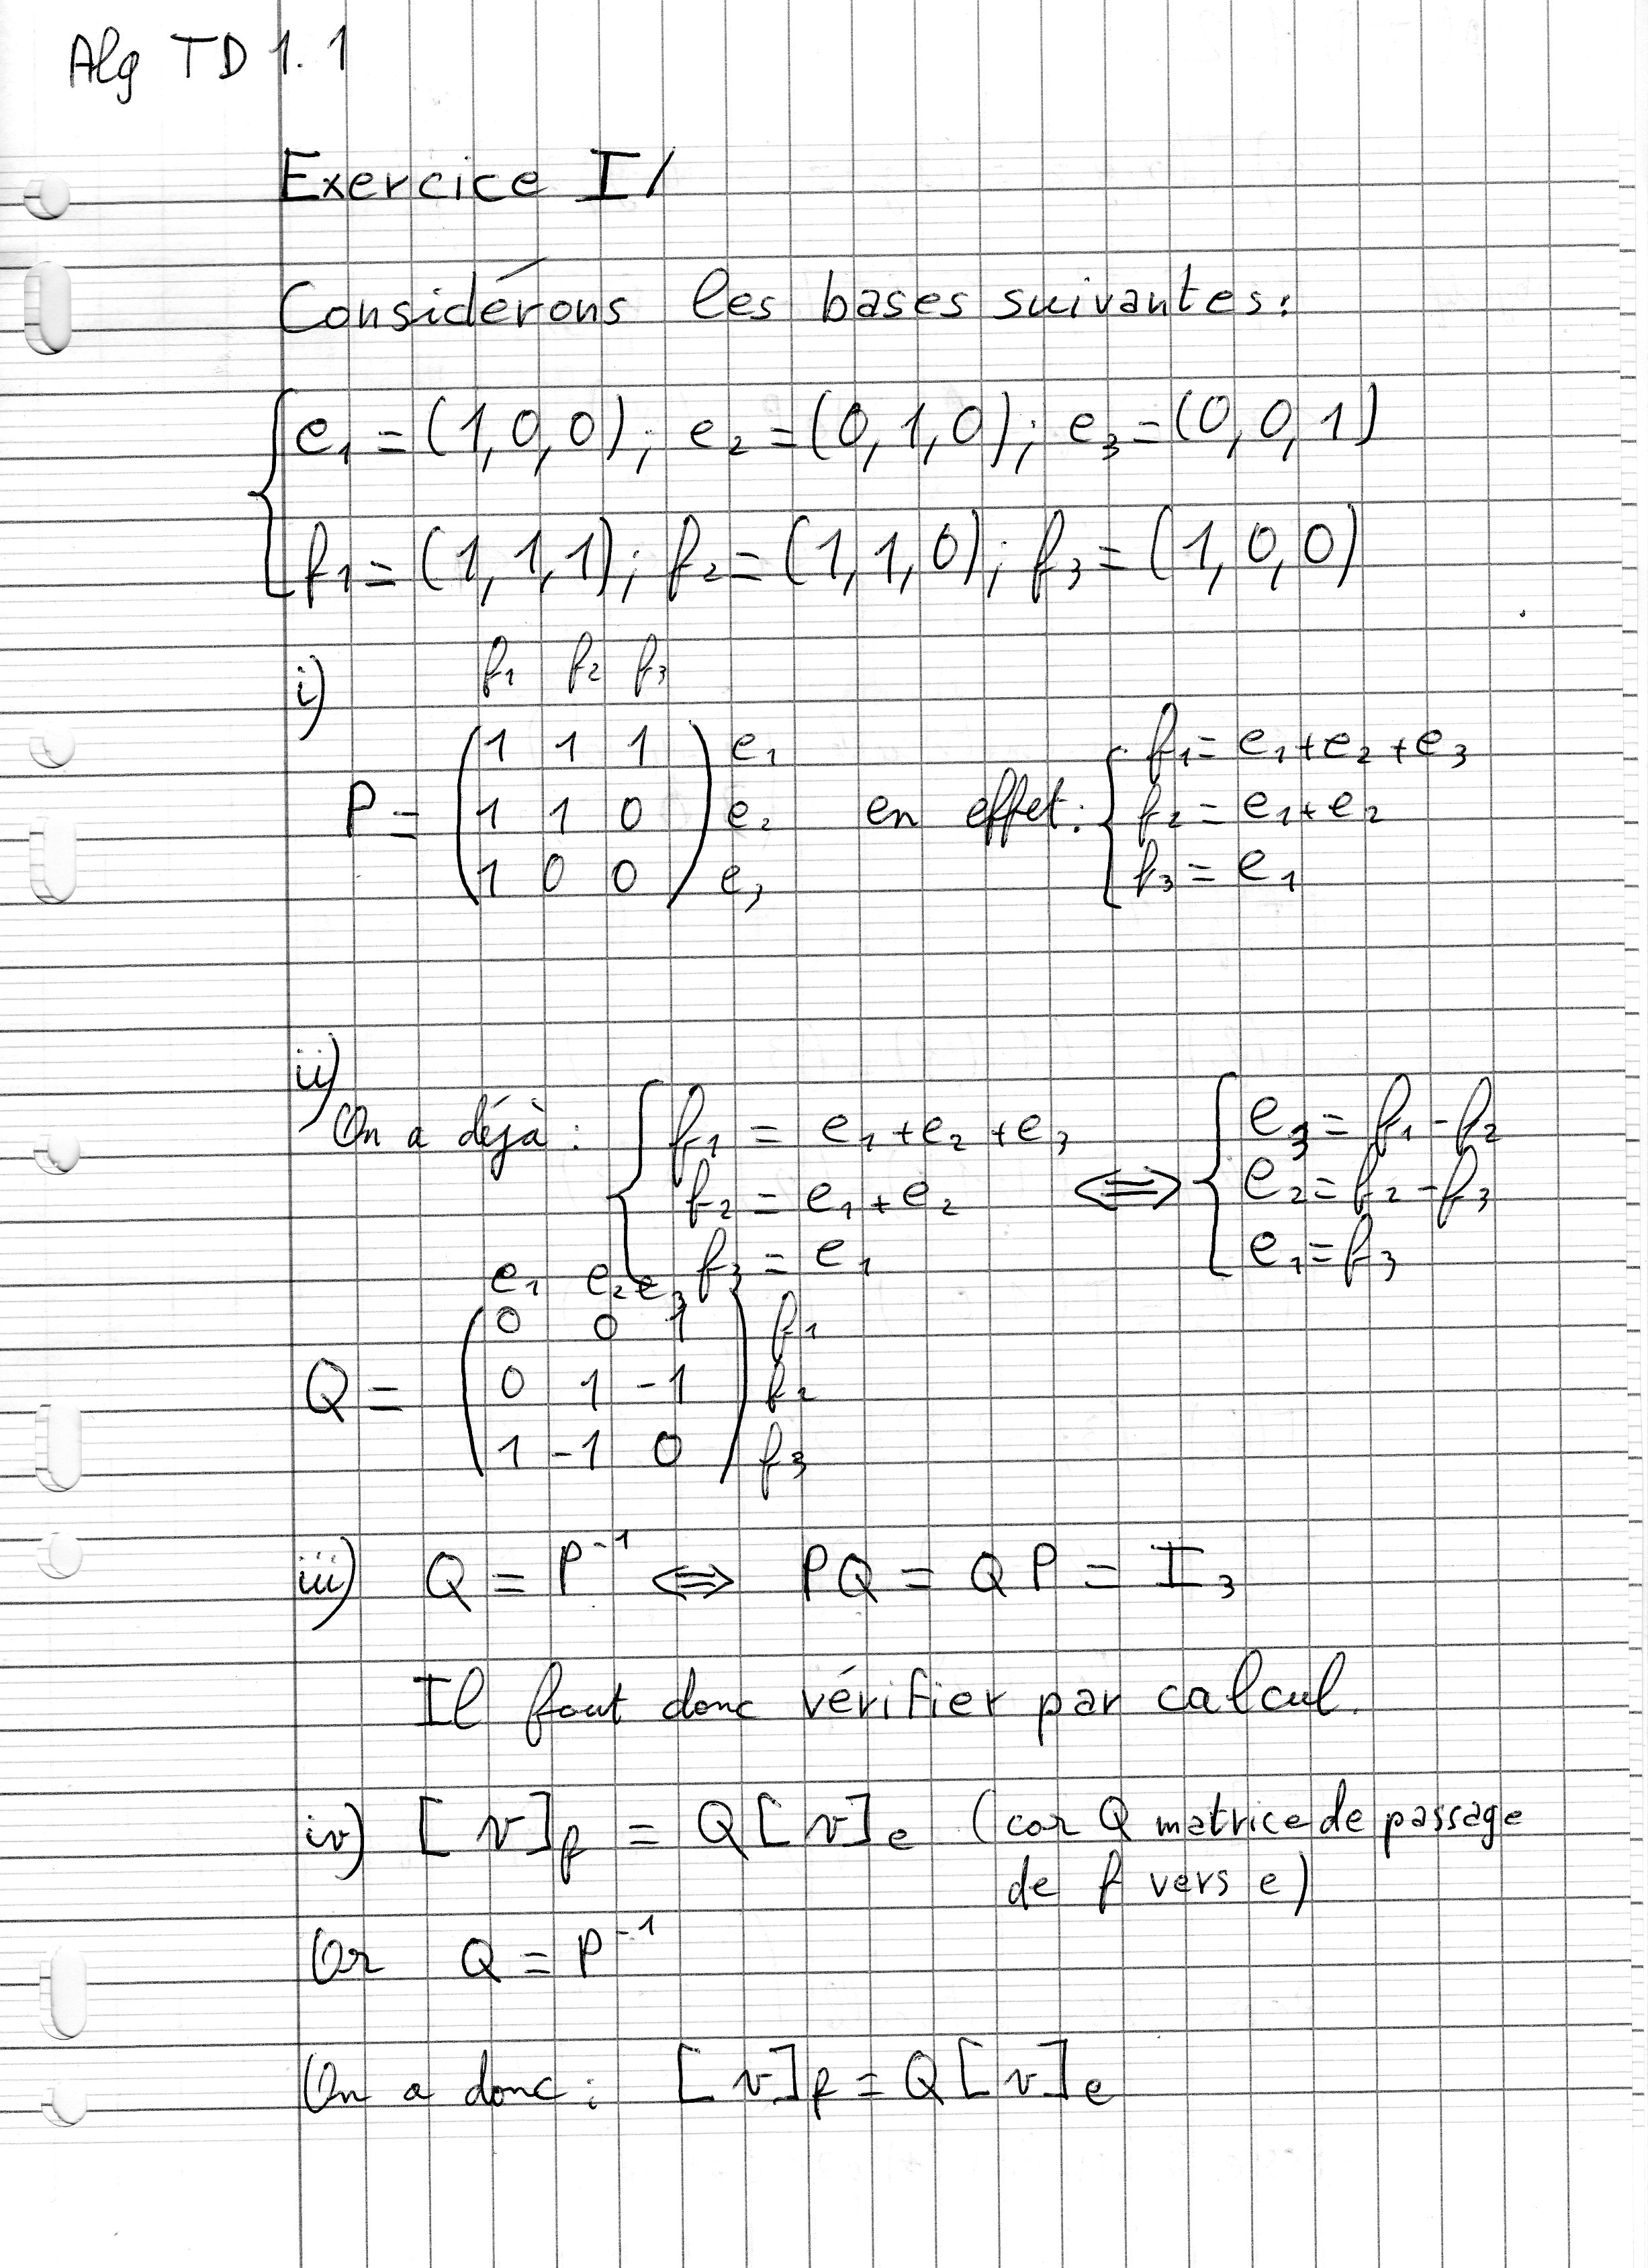 Alg TD 1.1
Exercice I/
Considérons les bases suivantes:
{ e₁ = (1,0,0); e₂ = (0,1,0); e₃ = (0,0,1)
f₁ = (1,1,1); f₂ = (1,1,0); f₃ = (1,0,0)
i)
f₁ f₂ f₃
P = ( 1 1 1 ) e₁
1 1 0 e₂
1 0 0 e₃
en effet: { f₁ = e₁ + e₂ + e₃
f₂ = e₁ + e₂
f₃ = e₁
ii)
On a déjà: { f₁ = e₁ + e₂ + e₃
f₂ = e₁ + e₂
f₃ = e₁
⟺ { e₃ = f₁ - f₂
e₂ = f₂ - f₃
e₁ = f₃
e₁ e₂ e₃
Q = ( 0 0 1 ) f₁
0 1 -1 f₂
1 -1 0 f₃
iii) Q = P⁻¹ ⟺ PQ = QP = I₃
Il faut donc vérifier par calcul.
iv) [v]f = Q[v]e (car Q matrice de passage
de f vers e)
Or Q = P⁻¹
On a donc: [v]f = Q[v]e